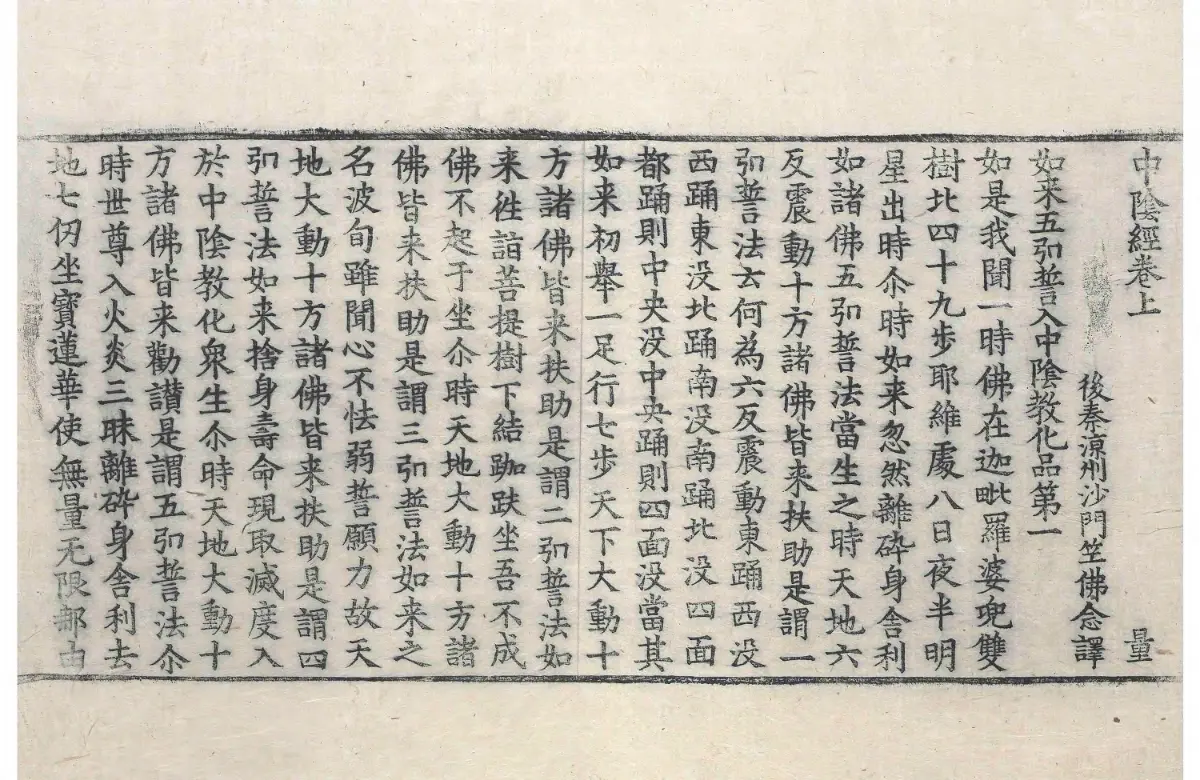 中陰經卷上 量
後秦涼州沙門竺佛念譯
如来五弘誓入中陰教化品第一
如是我聞一時佛在迦毗羅婆兜雙
樹北四十九步耶維處八日夜半明
星出時尒時如来忽然離碎身舍利
如諸佛五弘誓法當生之時天地六
反震動十方諸佛皆来扶助是謂一
弘誓法云何為六反震動東踊西没
西踊東没北踊南没南踊北没四面
都踊則中央没中央踊則四面没當其
如来初舉一足行七步天下大動十
方諸佛皆来扶助是謂二弘誓法如
来徃詣菩提樹下結跏趺坐吾不成
佛不起于坐尒時天地大動十方諸
佛皆来扶助是謂三弘誓法如来之
名波旬雖聞心不怯弱誓願力故天
地大動十方諸佛皆来扶助是謂四
弘誓法如来捨身壽命現取滅度入
於中陰教化衆生尒時天地大動十
方諸佛皆来勸讃是謂五弘誓法尒
時世尊入火炎三昧離碎身舍利去
地七仞坐寶蓮華使無量无限那由